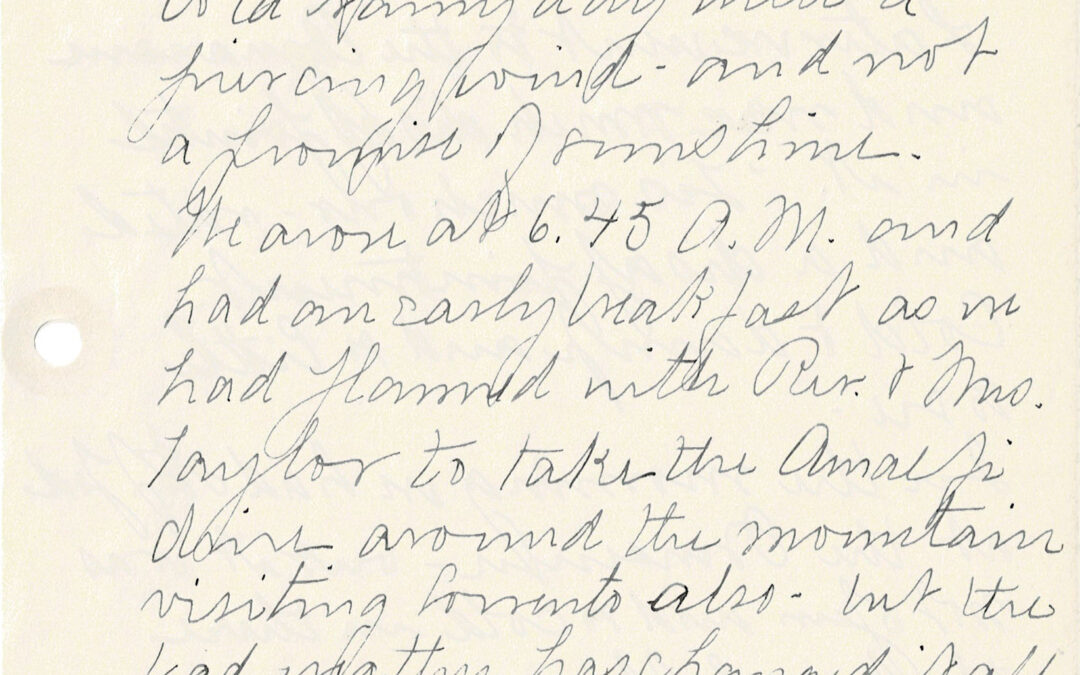 cold rainy day with a
piercing wind - and not
a promise of sunshine.
We arose at 6.45 A.M. and
had an early breakfast as we
had planned with Rev. & Mrs.
Taylor to take the Amalfi
drive around the mountain
visiting Sorrento also - but the
bad weather has changed it all